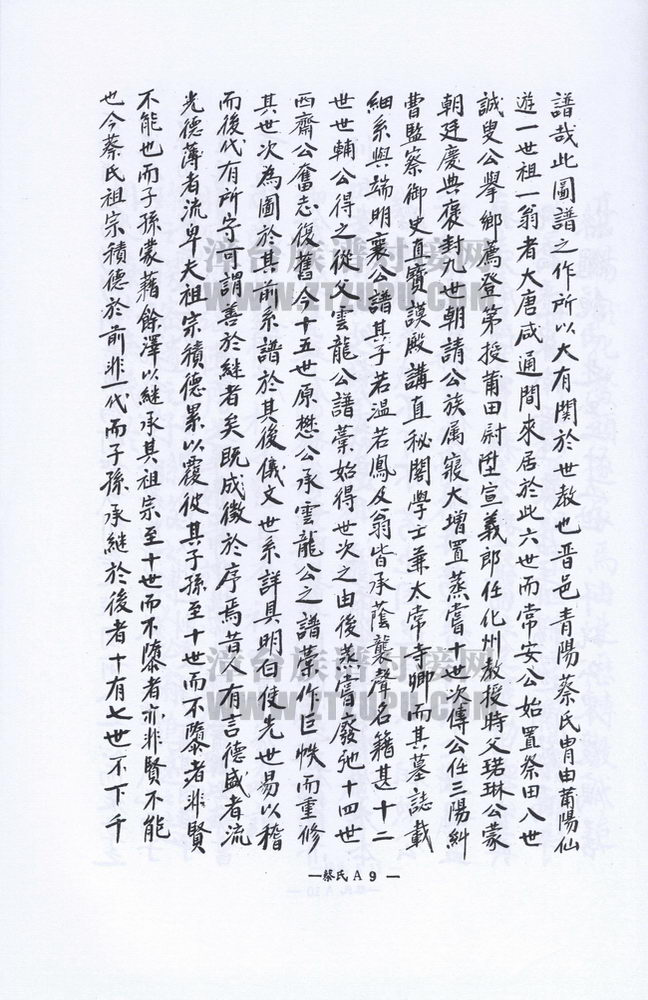 譜哉此圖譜之作所以大有関於世教也晋邑青陽蔡氏胄由莆陽仙
遊一世祖一翁者大唐咸通間來居於此六世而常安公始置祭田八世
誠叟公舉鄉薦登第授莆田尉陞宣義郎任化州教授時父珺琳公蒙
朝廷慶典褒封九世朝請公族属寖大增置蒸嘗十世次傳公任三陽糾
曹監察御史直寶謨殿講直秘閣學士兼太常寺卿而其墓誌載
細系與端明襄公譜其子若溫若鳳及翁皆承蔭聲名籍甚十二
世世輔公得之從父雲龍公譜藁始得世次之由後蒸嘗廢弛十四世
西齋公奮志復舊今十五世原懋公承雲龍公之譜藁作巨帙而重修
其世次為圖於其前系譜於其後儀文世系詳具明白使先世易以稽
而後代有所守可謂善於継者矣既成徵於序焉昔人有言德盛者流
光德薄者流卑夫祖宗積德累以覆彼其子孫至十世而不隳者非賢
不能也而子孫蒙藉餘澤以継承其祖宗至十世而不隳者亦非賢不能
也今蔡氏祖宗積德於前非一代而子孫承継於後者十有七世不下千
—蔡氏 A 9 —
漳台族谱对接网
WWW.ZTZUPU.COM
漳台族谱对接网
WWW.ZTZUPU.COM